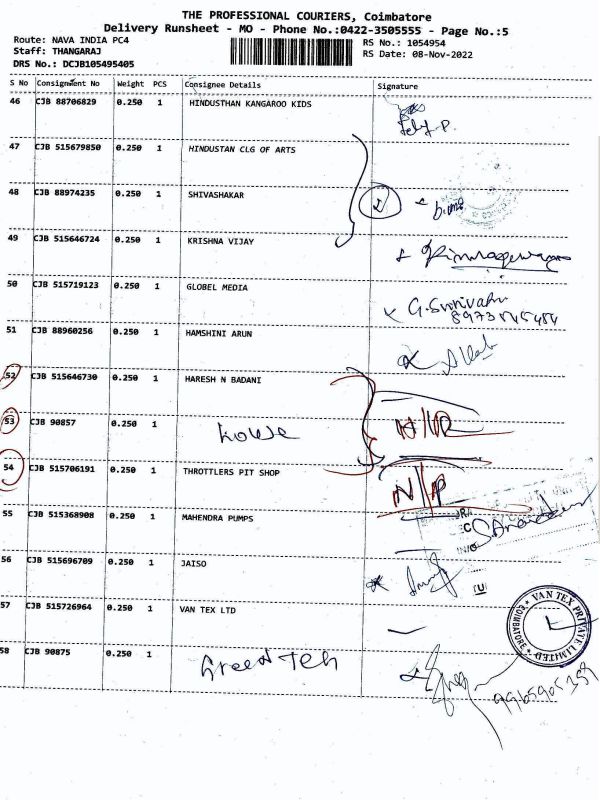 THE PROFESSIONAL COURIERS, Coimbatore
Delivery Runsheet - MO - Phone No.:0422-3505555 - Page No.:5
Route: NAVA INDIA PC4
RS No.: 1054954
Staff: THANGARAJ
RS Date: 08-Nov-2022
DRS No.: DCJB105495405
S No Consignment No Weight PCS Consignee Details Signature
46 CJB 88706829 0.250 1 HINDUSTHAN KANGAROO KIDS
47 CJB 515679850 0.250 1 HINDUSTAN CLG OF ARTS
48 CJB 88974235 0.250 1 SHIVASHAKAR 2
49 CJB 515646724 0.250 1 KRISHNA VIJAY
50 CJB 515719123 0.250 1 GLOBEL MEDIA
51 CJB 88960256 0.250 1 HAMSHINI ARUN
52 CJB 515646730 0.250 1 HARESH N BADANI
53 CJB 90857 0.250 1
54 CJB 515706191 0.250 1 THROTTLERS PIT SHOP N/P
55 CJB 515368908 0.250 1 MAHENDRA PUMPS
56 CJB 515696709 0.250 1 JAISO
57 CJB 515726964 0.250 1 VAN TEX LTD
VAN TEX PRIVATE LIMITED COIMBATORE
58 CJB 90875 0.250 1 Green Teh